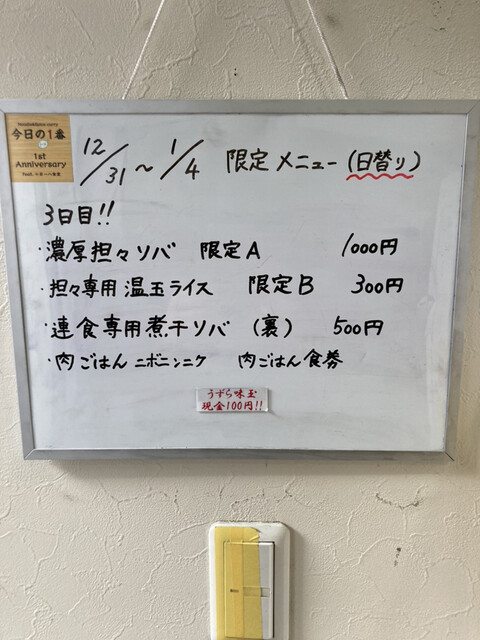 今日の1番
1st
Anniversary
12/31～1/4 限定メニュー(日替り)
3日目!!
・濃厚担々ソバ 限定A 1000円
・担々専用温玉ライス 限定B 300円
・連食専用煮干ソバ (裏) 500円
・肉ごはん ニボニンニク 肉ごはん食券
うずら味玉
現金100円!!